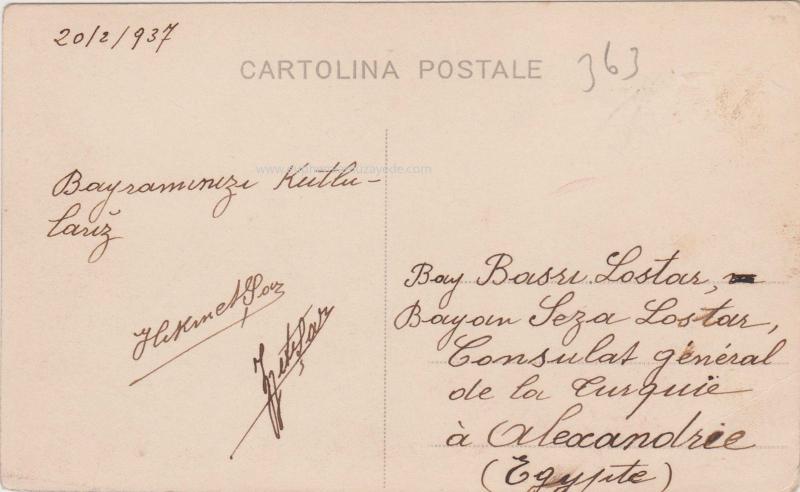 20/2/937
CARTOLINA POSTALE
363
Bayramınızı Kutlu-
larız
Hikmet Şar
Bay Basrı Lostar,
Bayan Seza Lostar,
Consulat général
de la Turquie
à Alexandrie
(Egypte)